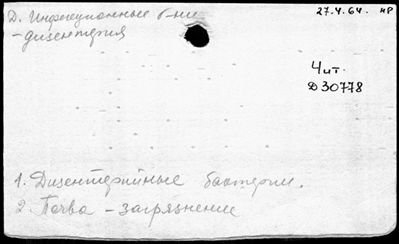 Д. Инфекционные б-ни
- дизентерия
27.4.64. нр
Чит.
Д30778
1. Дизентерийные бактерии.
2. Почва - загрязнение